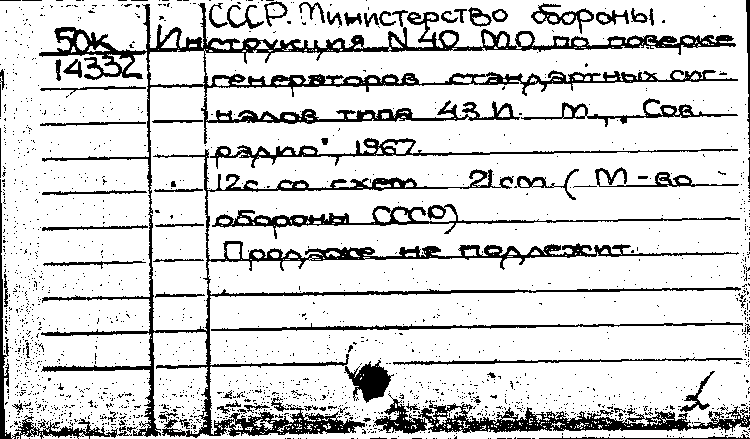 СССР. Министерство обороны.
50К Инструкция N 40 МО по поверке
14332 генераторов стандартных сиг-
налов типа 43 И. М., „Сов.
радио", 1967.
12с. со схем. 21 cm. (М-во
обороны СССР)
Продаже не подлежит.